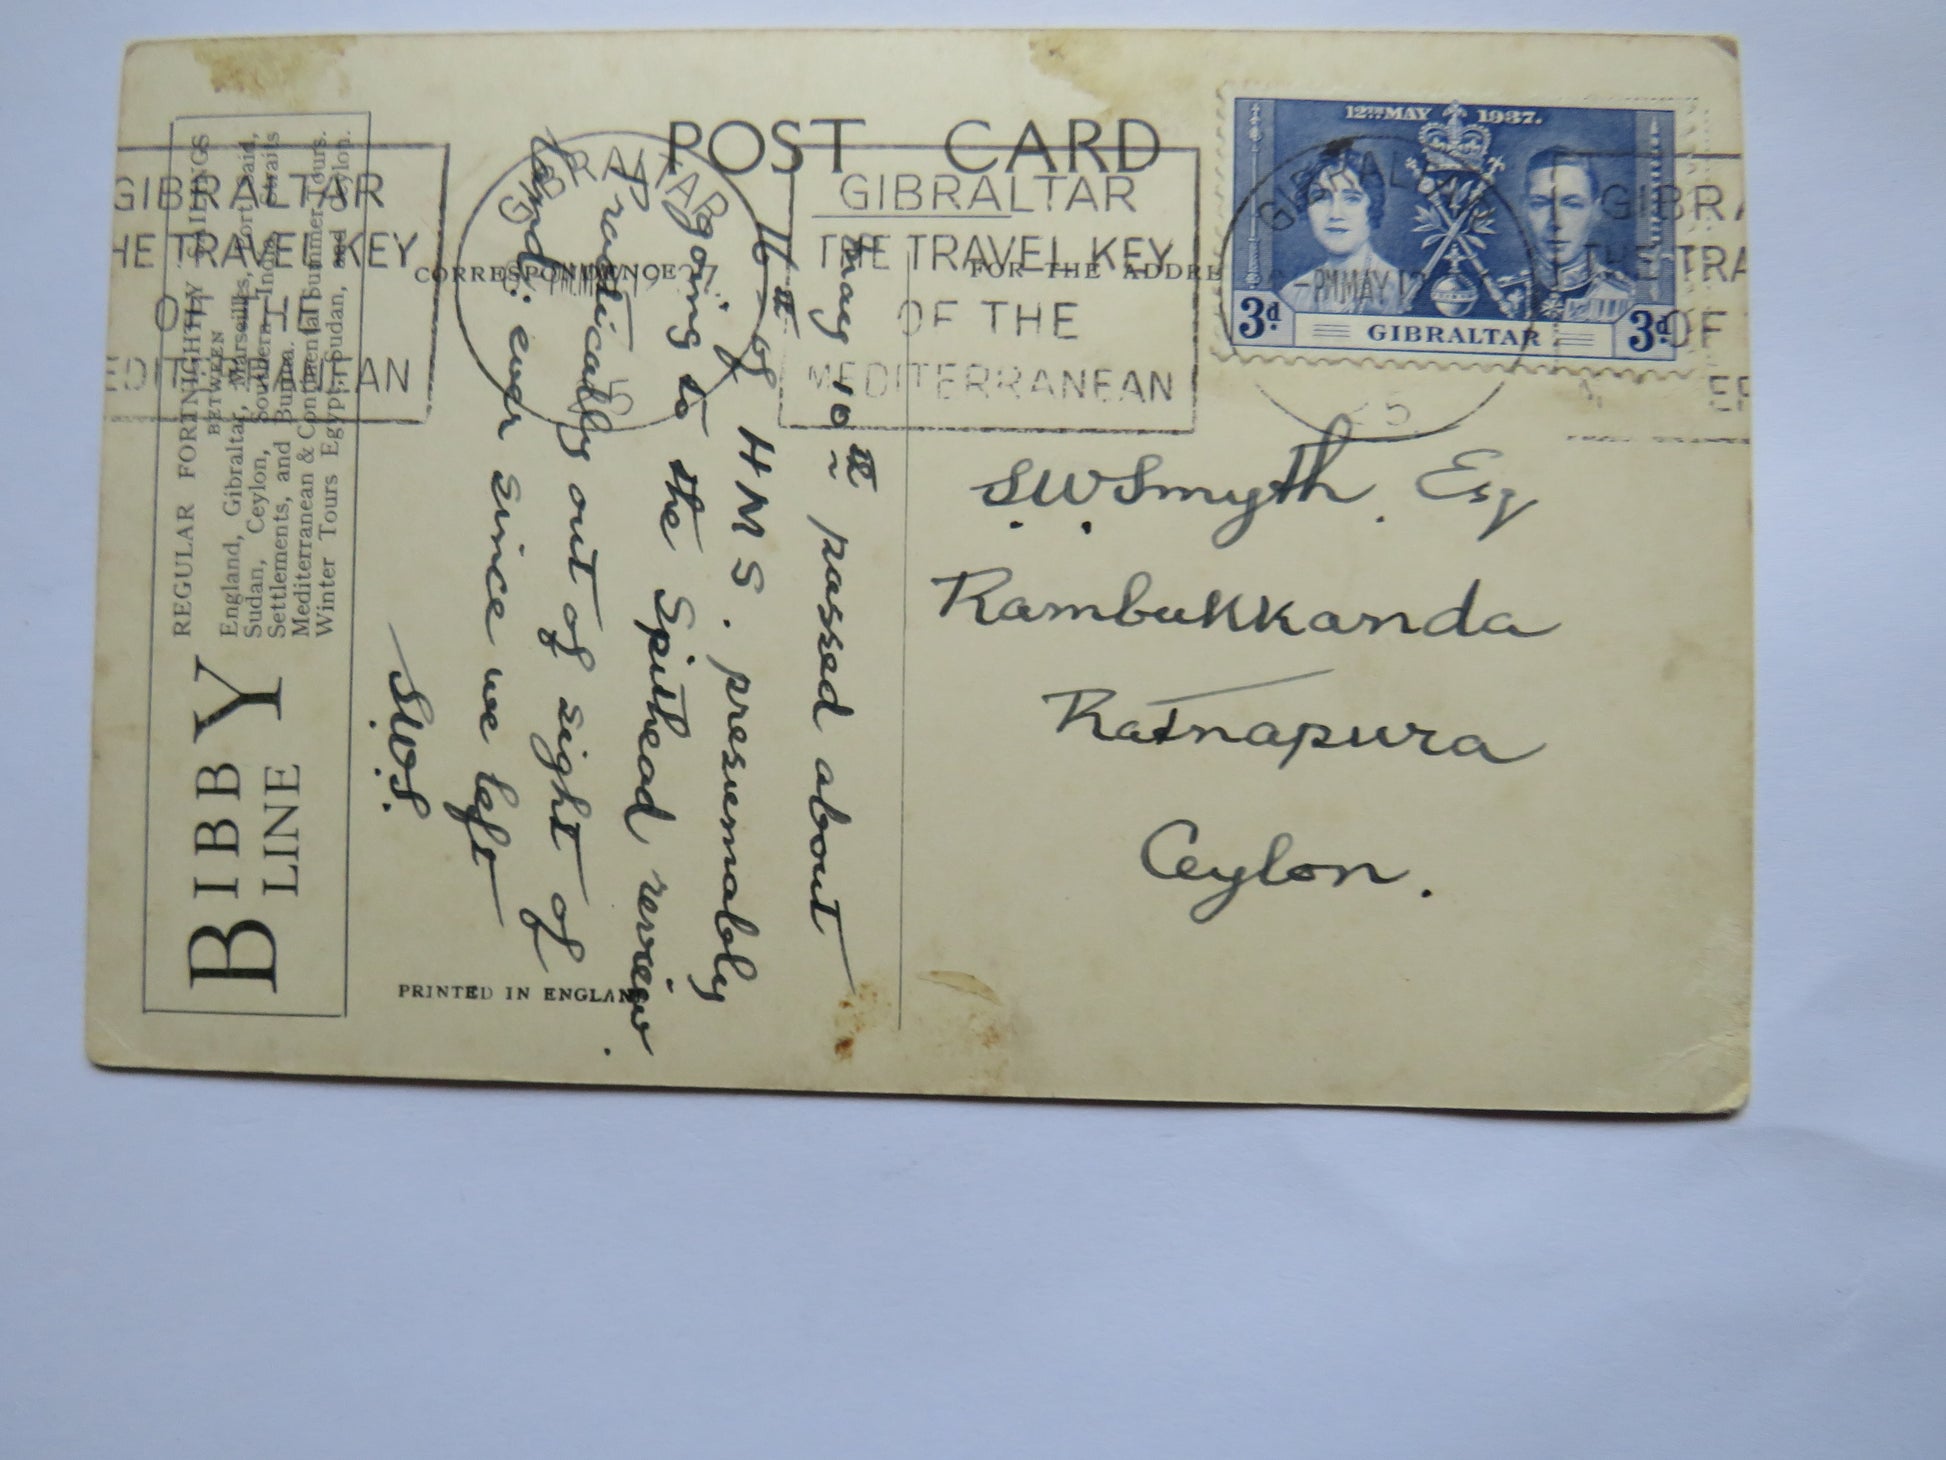 POST CARD
CORRESPONDENCE
FOR THE ADDRE
12TH MAY 1937.
3d. GIBRALTAR 3d.
GIBRALTAR
THE TRAVEL KEY
OF THE
MEDITERRANEAN
GIBRALTAR
5
GIBRALTAR
HE TRAVEL KEY
OF THE
EDITERRANEAN
GIBRALTAR
-PM MAY 1
25
GIBRA
THE TRA
OF
ER
S.W. Smyth. Esq
Rambukkanda
Ratnapura
Ceylon.
May 10th passed about
16 of H M S. presumably
going to the Spithead review.
Practically out of sight of
land ever since we left
S.W.S.
BIBBY
LINE
REGULAR FORTNIGHTLY SAILINGS
BETWEEN
England, Gibraltar, Marseilles, Port Said,
Sudan, Ceylon, Southern India, Straits
Settlements, and Burma.
Mediterranean & Continental Summer Tours.
Winter Tours Egypt, Sudan, and Ceylon.
PRINTED IN ENGLAND